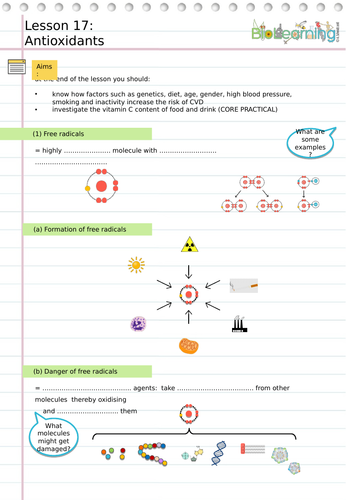 Lesson 17:
Antioxidants
BioLearning
Aims
:
at the end of the lesson you should:
• know how factors such as genetics, diet, age, gender, high blood pressure,
smoking and inactivity increase the risk of CVD
• investigate the vitamin C content of food and drink (CORE PRACTICAL)
(1) Free radicals
What are
some
examples
?
= highly ...................... molecule with ...........................
..................................
(a) Formation of free radicals
(b) Danger of free radicals
= .......................................... agents: take .................................... from other
molecules thereby oxidising
and ............................. them
What
molecules
might get
damaged?